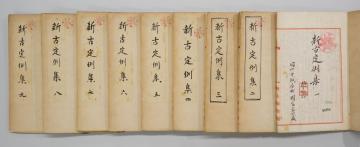 新古定例集 一
新古定例集 二
新古定例集 三
新古定例集 四
新古定例集 五
新古定例集 六
新古定例集 七
新古定例集 八
新古定例集 九